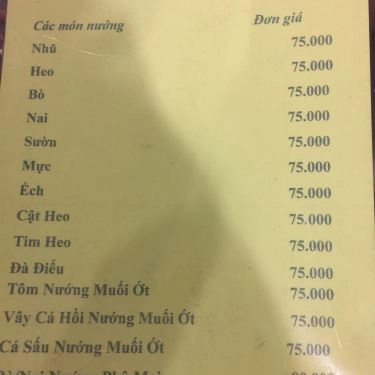 Các món nướng Đơn giá
Nhũ 75.000
Heo 75.000
Bò 75.000
Nai 75.000
Sườn 75.000
Mực 75.000
Ếch 75.000
Cật Heo 75.000
Tim Heo 75.000
Đà Điểu 75.000
Tôm Nướng Muối Ớt 75.000
Vây Cá Hồi Nướng Muối Ớt 75.000
Cá Sấu Nướng Muối Ớt 75.000
Nướng